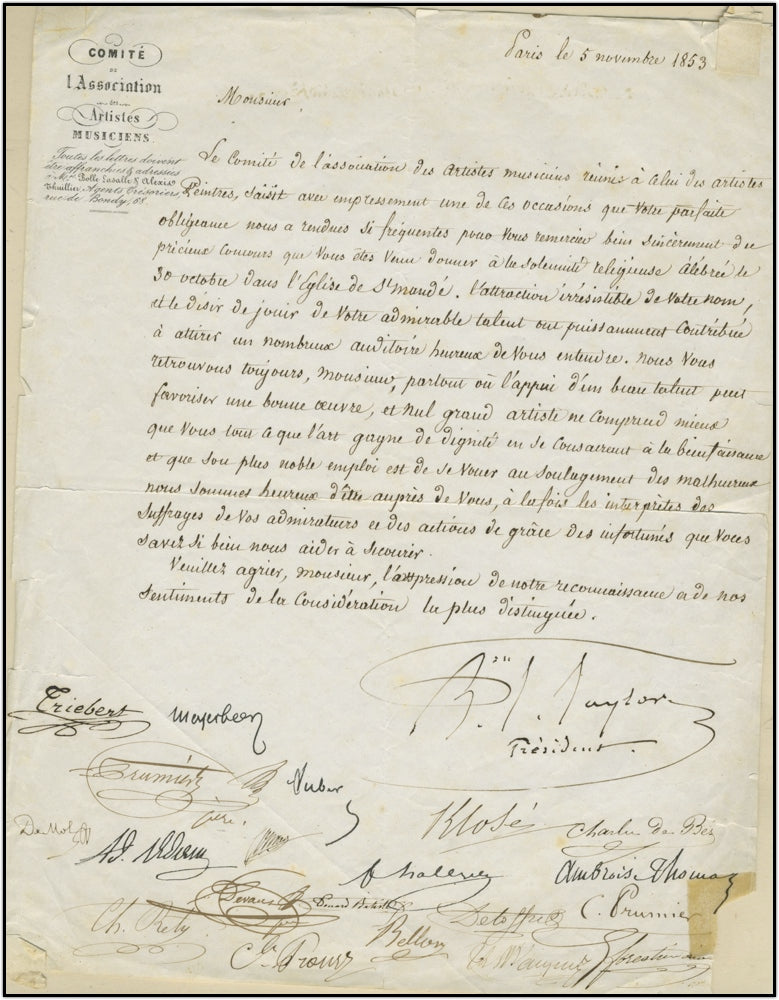 COMITÉ
DE
l'Association
des
Artistes
MUSICIENS.
Toutes les lettres doivent
être affranchies & adressées
à Mrs Bolle Lasalle & Alexis
Thuillier, Agents Trésoriers,
rue de Bondy, 68.
Paris le 5 novembre 1853
Monsieur
Le Comité de l'association des Artistes musiciens réunis à Celui des artistes
Peintres, saisit avec empressement une de ces occasions que Votre parfaite
obligeance nous a rendues si fréquentes pour Vous remercier bien sincèrement du
précieux Concours que Vous êtes Venu donner à la solemnité religieuse célébrée le
30 octobre dans l'Eglise de St mandé. l'attraction irrésistible de Votre nom,
et le désir de jouir de Votre admirable talent ont puissamment Contribué
à attirer un nombreux auditoire heureux de Vous entendre. nous Vous
retrouvons toujours, monsieur, partout où l'appui d'un beau talent peut
favoriser une bonne œuvre, et nul grand artiste ne Comprend mieux
que Vous tout ce que l'art gagne de dignité en se Consacrant à la bienfaisance
et que son plus noble emploi est de se Vouer au soulagement des malheureux
nous sommes heureux d'être auprès de Vous, à la fois les interprètes des
suffrages de Vos admirateurs et des actions de grâce des infortunés que Vous
savez si bien nous aider à secourir.
Veuillez agréer, monsieur, l'expression de notre reconnaissance et de nos
sentiments de la Considération la plus distinguée.
Bon J. Taylor
Président
Triebert
Meyerbeer
Prumier
père.
Auber
Klosé
Charles de Bez
Ad. Adam
f halévy
Ambroise Thomas
Ch. Rety
Bellon
C. Prumier
forestier